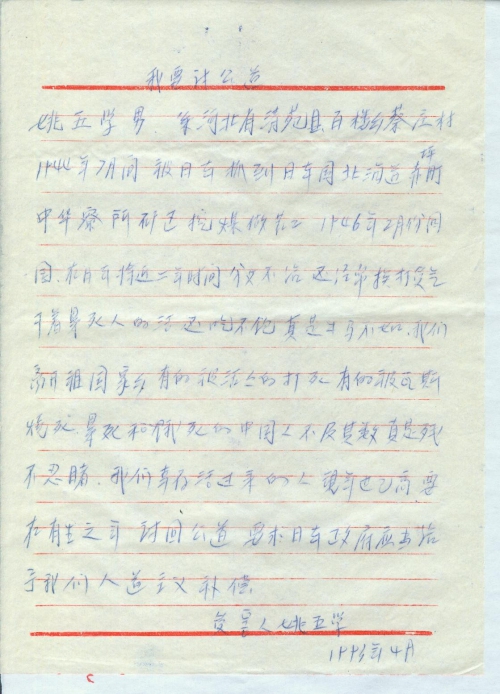 我要讨公道
姚五学 男 系河北省清苑县百楼乡蔡庄村
1944年7月间 被日本抓到日本国北海道赤
坪
中华寮所 矿区挖煤做苦工 1946年2月份回
国.在日本将近二年时间分文不给 还经常挨打受气
干着累死人的活还吃不饱 真是牛马不如.我们
离开祖国家乡 有的被活活的打死 有的被瓦斯
烧死 累死和饿死的中国人不及其数 真是残
不忍睹.我们幸存活过来的人 现年也已高 要
在有生之年 讨回公道 要求日本政府应当给
予我们人道主义补偿.
受害人 姚五学
年4月